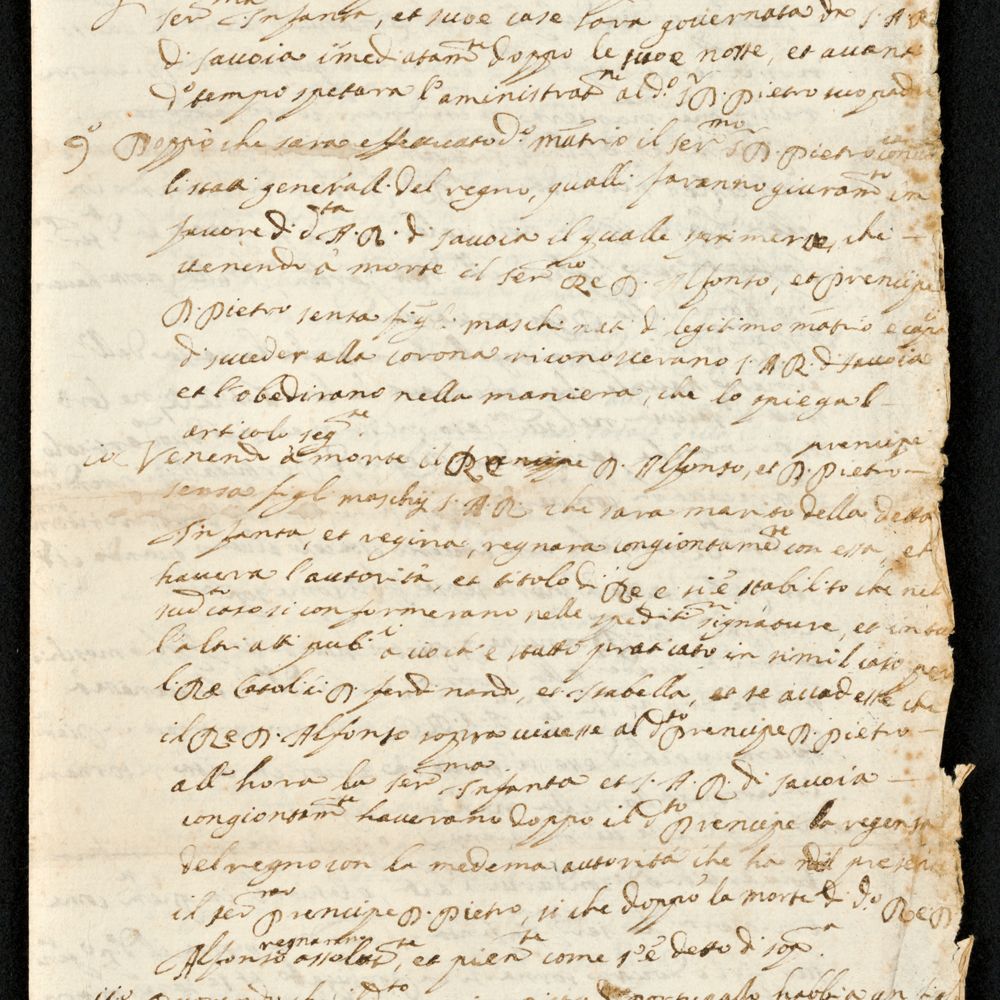 ser.ma Infanta, et suoe case sara governata da S. A. R.
di Savoia imediatam.te doppo le suoe nosse, et avant
d.o tempo spetara l'aministrat.ne al d.o S.r D. Pietro suo padre
9.o Doppo che sara effettuato d.o mātrio il ser.mo S.r D. Pietro
li stati generali del regno, quali faranno giuram.to in
favore di d.ta A. R. di Savoia il qualle esprimerà, che
venendo a morte il ser.mo Re D. Alfonso, et Prencipe
D. Pietro sensa figli maschi nati di legitimo mātrio e
di succeder alla corona riconosserano S. A. R. di Savoia
et l'obedirano nella maniera, che lo spiega l'
articolo seg.te
10 Venendo a morte il Re D. Alfonso, et prencipe D. Pietro
sensa figli maschij S. A. R. che sara marito della detta
Infanta, et regina, regnara congiontam.te con essa, et
havera l'autorità, et titolo di Re e si è stabilito che nel
sud.to caso si conformerano nelle spedit.ni signature, et in
l'altri atti publ.i a ciò ch'è statto praticato in simil caso
li Re Catolici D. Ferdinando, et Isabella, et se accadesse che
il Re D. Alfonso sopra vivesse al d.to Prencipe D. Pietro
all'hora la ser.ma Infanta et S. A. R. di Savoia
congiontam.te haverano doppo il d.to Prencipe la regensa
del regno con la medema autorità che ha
il ser.mo Prencipe D. Pietro, si che doppo la morte di d.o Re D.
Alfonso regnarano assolut.te, et pien.te come s'è detto di sop.a